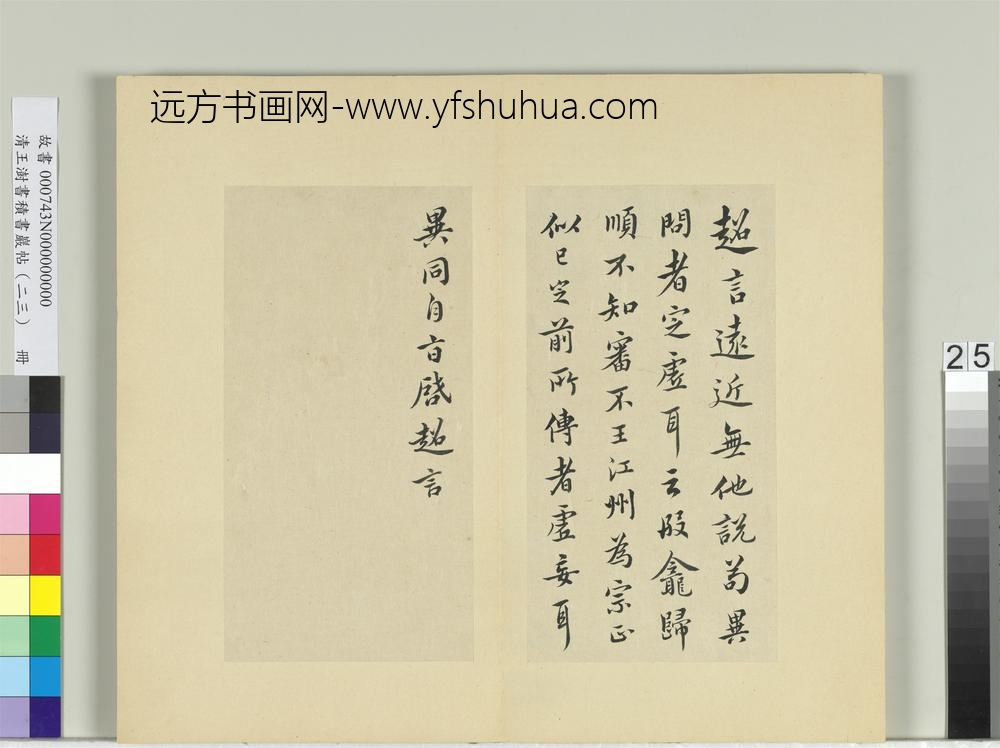 远方书画网-www.yfshuhua.com
故書 000743N000000000
清王澍書積書巖帖(二三) 冊
25
超言遠近無他說苟異
問者定虛耳云殷龕歸
順不知審不王江州為宗正
似已定前所傳者虛妄耳
異同自百啓超言